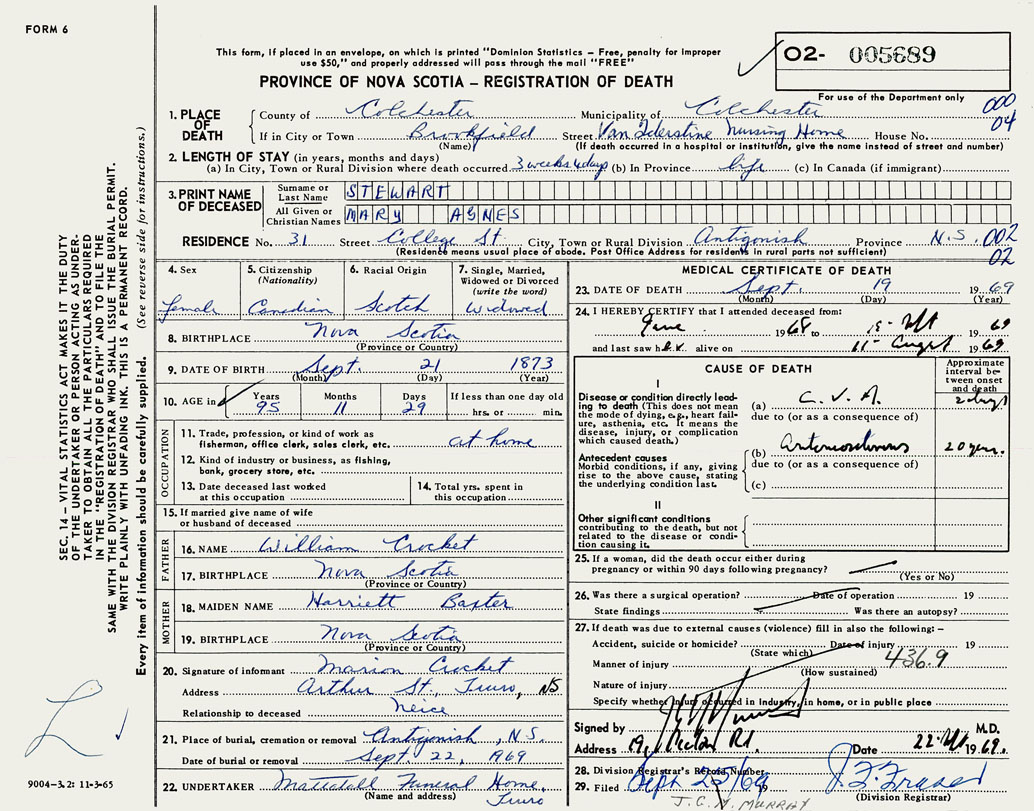 FORM 6
This form, if placed in an envelope, on which is printed "Dominion Statistics – Free, penalty for improper
use $50," and properly addressed will pass through the mail "FREE"
O2- 005689
PROVINCE OF NOVA SCOTIA – REGISTRATION OF DEATH
For use of the Department only
000
04
1. PLACE OF DEATH
County of Colchester Municipality of Colchester
If in City or Town Brookfield Street Van Iderstine Nursing Home House No.
(Name) (If death occurred in a hospital or institution, give the name instead of street and number)
2. LENGTH OF STAY (in years, months and days)
(a) In City, Town or Rural Division where death occurred 3 weeks 4 days (b) In Province life (c) In Canada (if immigrant)
3. PRINT NAME OF DECEASED
Surname or Last Name STEWART
All Given or Christian Names MARY AGNES
RESIDENCE No. 31 Street College St. City, Town or Rural Division Antigonish Province N.S. 002
(Residence means usual place of abode. Post Office Address for residents in rural parts not sufficient) 02
4. Sex female
5. Citizenship (Nationality) Canadian
6. Racial Origin Scotch
7. Single, Married, Widowed or Divorced (write the word) Widowed
8. BIRTHPLACE Nova Scotia
(Province or Country)
9. DATE OF BIRTH Sept. 21 1873
(Month) (Day) (Year)
10. AGE in Years Months Days If less than one day old
95 11 29 hrs. or min.
OCCUPATION
11. Trade, profession, or kind of work as
fishermen, office clerk, sales clerk, etc. at home
12. Kind of industry or business, as fishing,
bank, grocery store, etc.
13. Date deceased last worked
at this occupation
14. Total yrs. spent in
this occupation
15. If married give name of wife
or husband of deceased
FATHER
16. NAME William Crocket
17. BIRTHPLACE Nova Scotia
(Province or Country)
MOTHER
18. MAIDEN NAME Harriett Baxter
19. BIRTHPLACE Nova Scotia
(Province or Country)
20. Signature of informant Marion Crocket
Address Arthur St., Truro, NS
Relationship to deceased Neice
21. Place of burial, cremation or removal Antigonish, N.S.
Date of burial or removal Sept. 22, 1969
22. UNDERTAKER Mattatall Funeral Home,
(Name and address) Truro
MEDICAL CERTIFICATE OF DEATH
23. DATE OF DEATH Sept. 19 1969
(Month) (Day) (Year)
24. I HEREBY CERTIFY that I attended deceased from:
June 1968 to 19 69
and last saw her alive on 11 August 1969
CAUSE OF DEATH
Approximate interval between onset and death
I
Disease or condition directly leading to death (This does not mean the mode of dying, e.g., heart failure, asthenia, etc. It means the disease, injury, or complication which caused death.)
(a) C. V. A. 2 days
due to (or as a consequence of)
Antecedent causes
Morbid conditions, if any, giving rise to the above cause, stating the underlying condition last.
(b) 20 years.
due to (or as a consequence of)
(c)
II
Other significant conditions
contributing to the death, but not related to the disease or condition causing it.
25. If a woman, did the death occur either during
pregnancy or within 90 days following pregnancy?
(Yes or No)
26. Was there a surgical operation? Date of operation 19
State findings Was there an autopsy?
27. If death was due to external causes (violence) fill in also the following: –
Accident, suicide or homicide? Date of injury 19
(State which)
436.9
Manner of injury
(How sustained)
Nature of injury
Specify whether injury occurred in Industry, in home, or in public place
Signed by M.D.
Address Date 22 1969.
28. Division Registrar's Record Number
29. Filed Sept 25/69 J. F. Fraser
(Division Registrar)
J.C. MURRAY
SEC. 14 – VITAL STATISTICS ACT MAKES IT THE DUTY
OF THE UNDERTAKER OR PERSON ACTING AS UNDER-
TAKER TO OBTAIN ALL THE PARTICULARS REQUIRED
IN THE "REGISTRATION OF DEATH" AND TO FILE THE
SAME WITH THE DIVISION REGISTRAR WHO SHALL ISSUE THE BURIAL PERMIT.
WRITE PLAINLY WITH UNFADING INK. THIS IS A PERMANENT RECORD.
Every item of information should be carefully supplied. (See reverse side for instructions.)
9004-3.2: 11-3-65